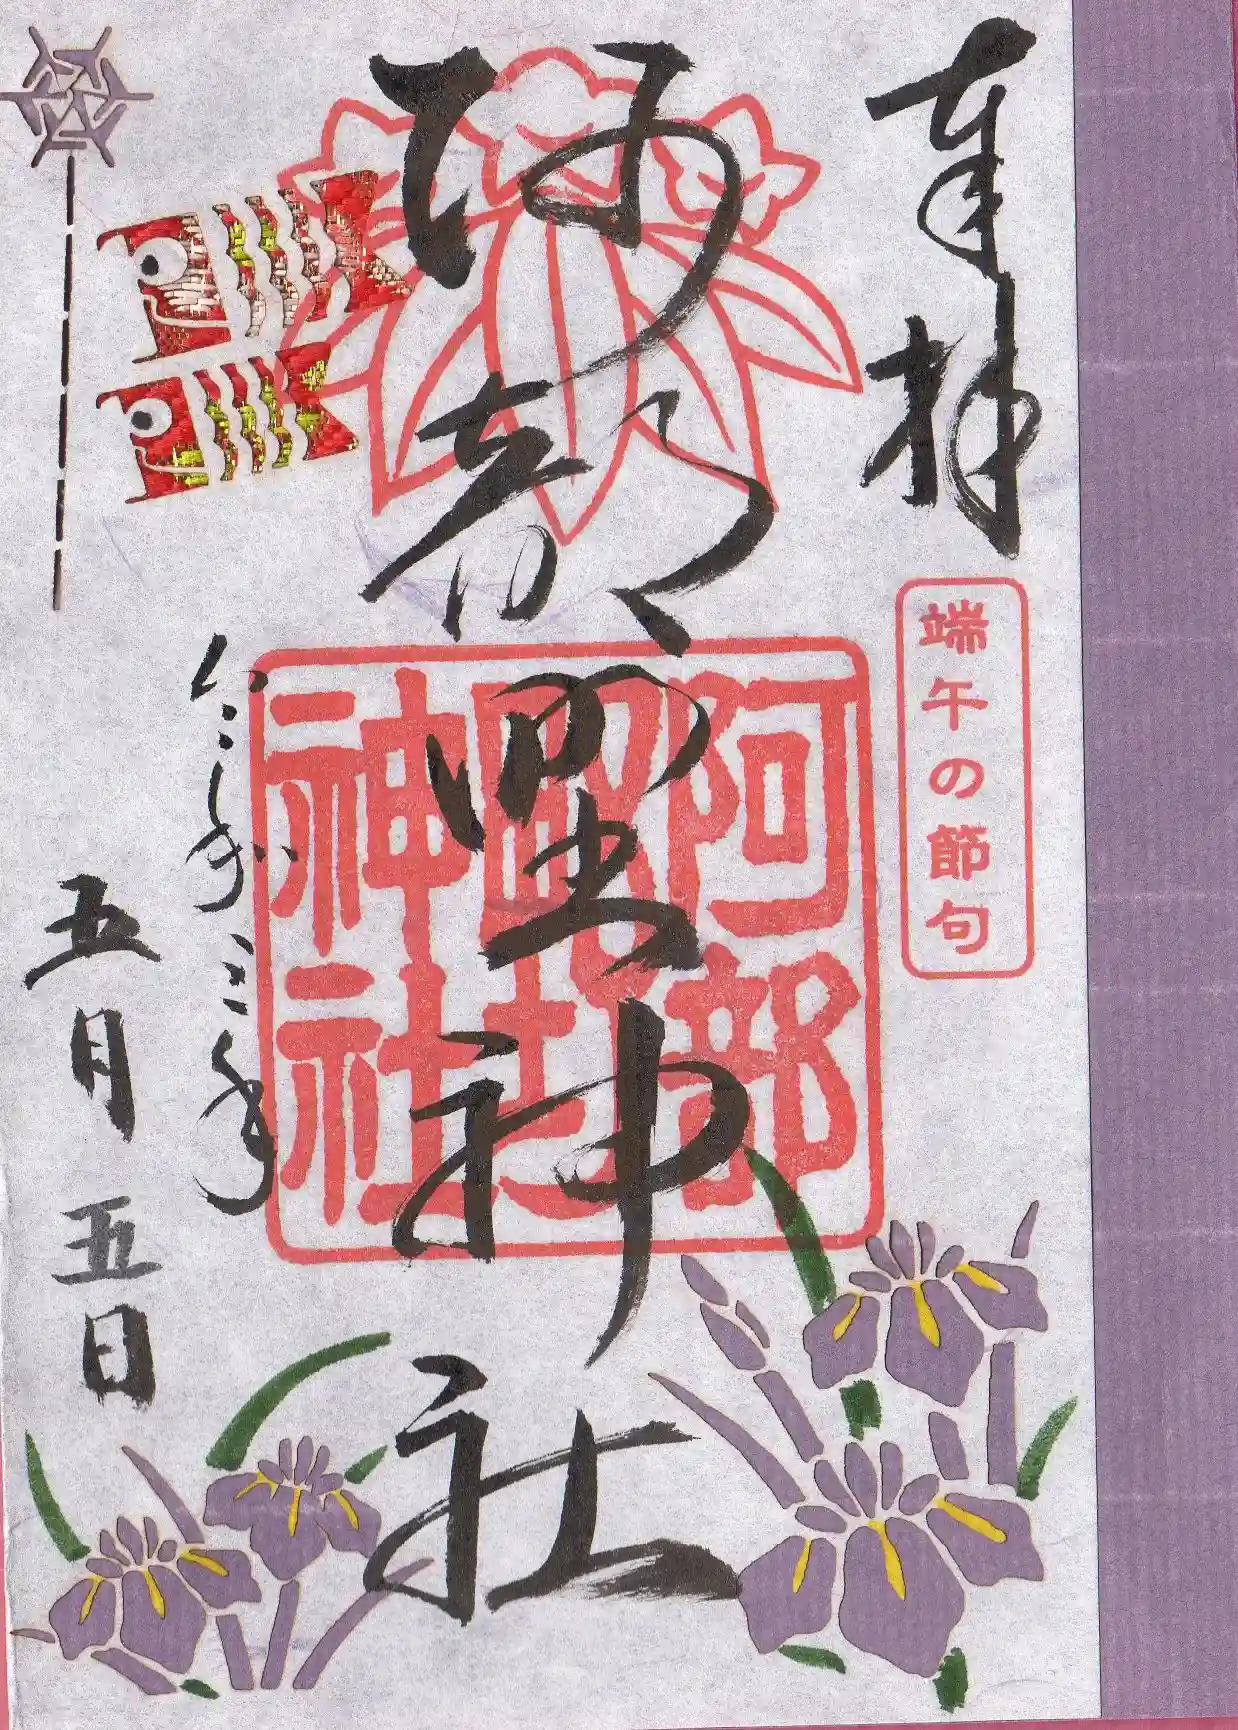 奉拝
端午の節句
阿部野神社
阿部野神社
五月五日